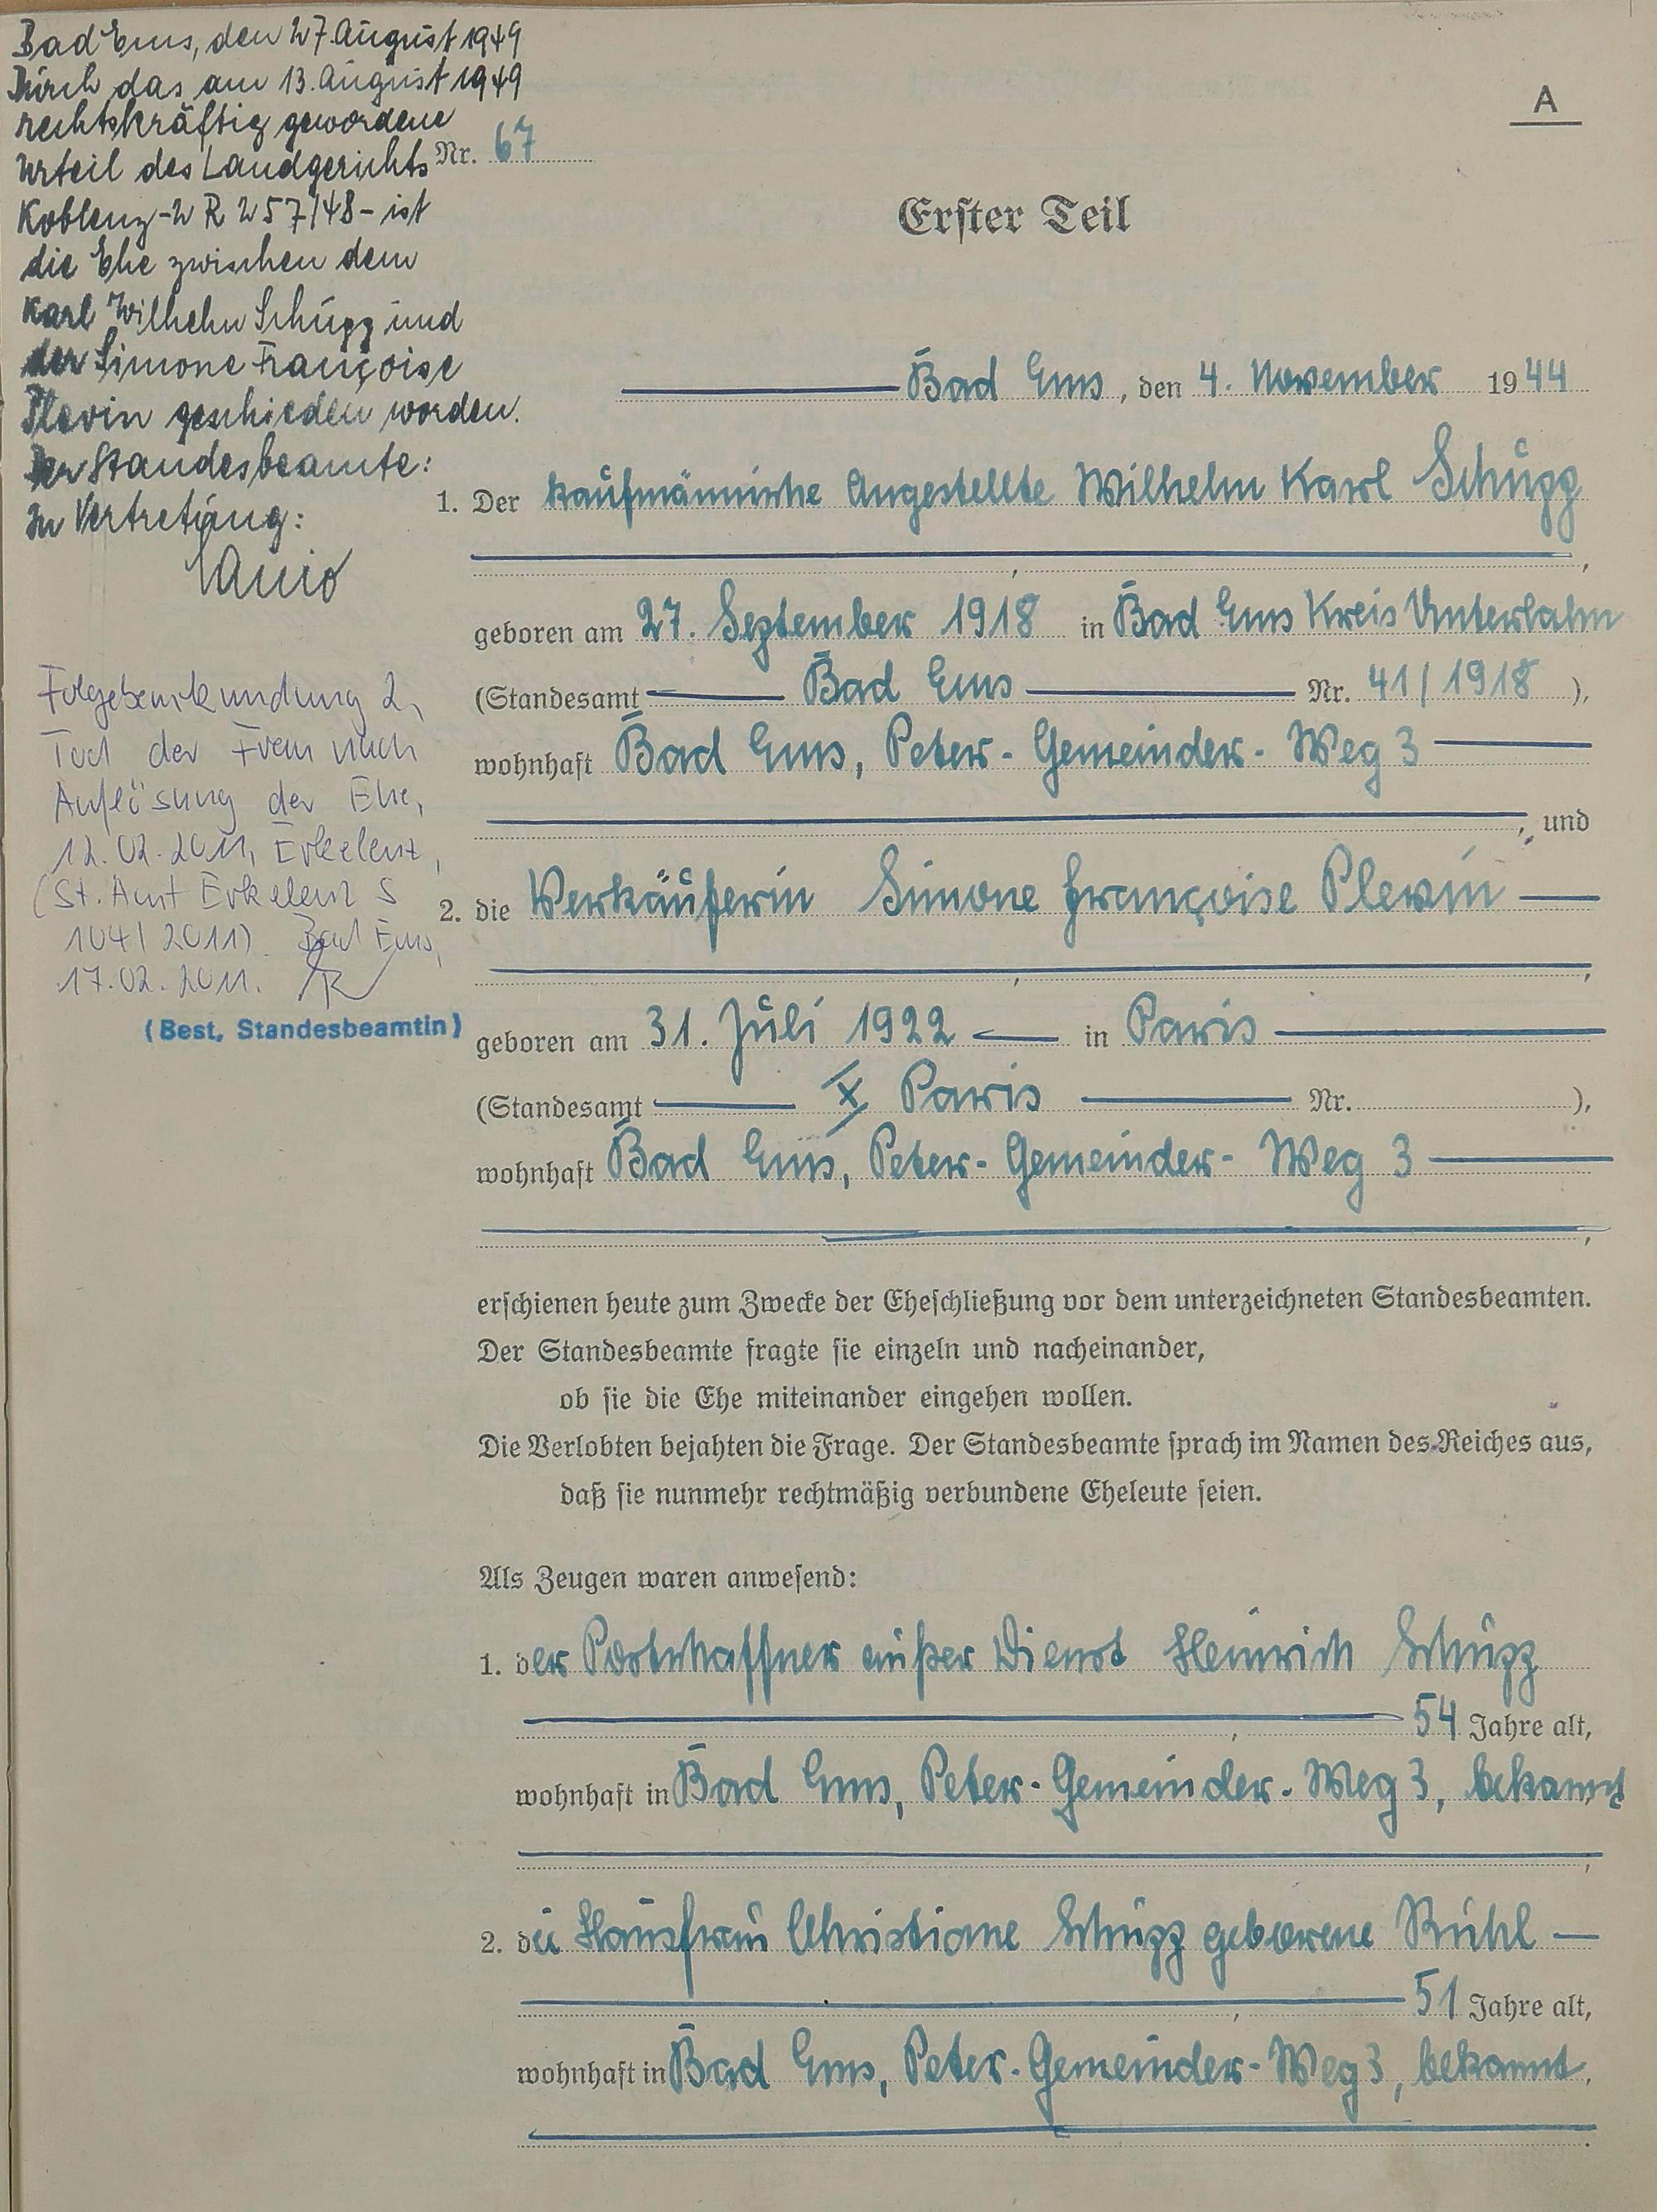 Bad Ems, den 27. August 1949
Durch das am 13. August 1949
rechtskräftig gewordene
Urteil des Landgerichts
Koblenz - 2 R 257/48 - ist
die Ehe zwischen dem
Karl Wilhelm Schupp und
der Simone Françoise
Plevin geschieden worden.
Der Standesbeamte:
In Vertretung:
Folgebeurkundung 2,
Tod der Frau nach
Auflösung der Ehe,
12.02.2011, Erkelenz,
(St. Amt Erkelenz S
104/2011). Bad Ems,
17.02.2011.
(Best. Standesbeamtin)
A
Nr. 67
Erster Teil
Bad Ems, den 4. November 1944
1. Der kaufmännische Angestellte Wilhelm Karl Schupp
geboren am 27. September 1918 in Bad Ems Kreis Unterlahn
(Standesamt Bad Ems Nr. 41/1918),
wohnhaft Bad Ems, Peter-Gemeinder-Weg 3
, und
2. die Verkäuferin Simone Françoise Plevin
geboren am 31. Juli 1922 in Paris
(Standesamt X Paris Nr. ),
wohnhaft Bad Ems, Peter-Gemeinder-Weg 3
erschienen heute zum Zwecke der Eheschließung vor dem unterzeichneten Standesbeamten.
Der Standesbeamte fragte sie einzeln und nacheinander,
ob sie die Ehe miteinander eingehen wollen.
Die Verlobten bejahten die Frage. Der Standesbeamte sprach im Namen des Reiches aus,
daß sie nunmehr rechtmäßig verbundene Eheleute seien.
Als Zeugen waren anwesend:
1. der Postschaffner außer Dienst Heinrich Schupp
54 Jahre alt,
wohnhaft in Bad Ems, Peter-Gemeinder-Weg 3, bekannt
2. die Hausfrau Christiane Schupp geborene Rühl
51 Jahre alt,
wohnhaft in Bad Ems, Peter-Gemeinder-Weg 3, bekannt.